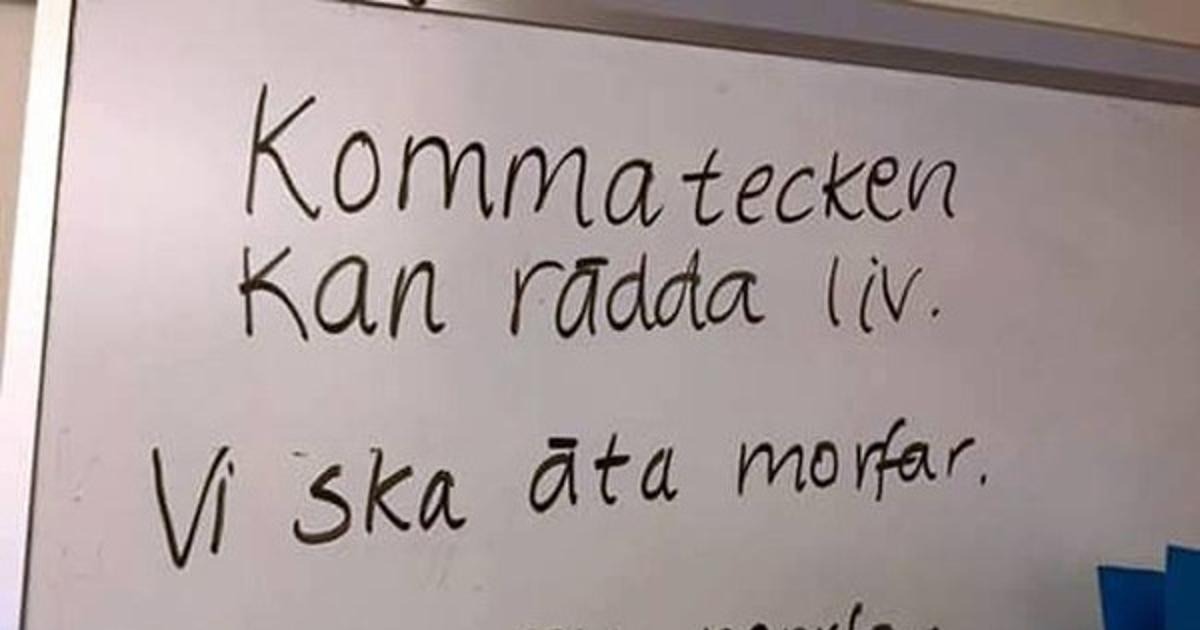 Kommatecken
kan rädda liv.
Vi ska äta morfar.